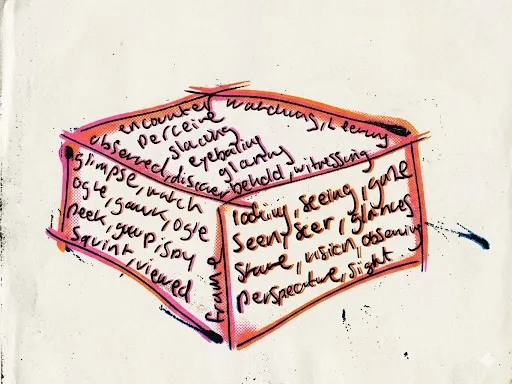 encounter watching,
perceive
staring
eyeballing
glaring
observed, discern
behold, witnessing
glimpse, watch
ogle, gawk, ogle
peek, spy
squint, viewed
frame
looking, seeing, gaze
seen, seer, glances
stare, vision, observing
perspective, sight